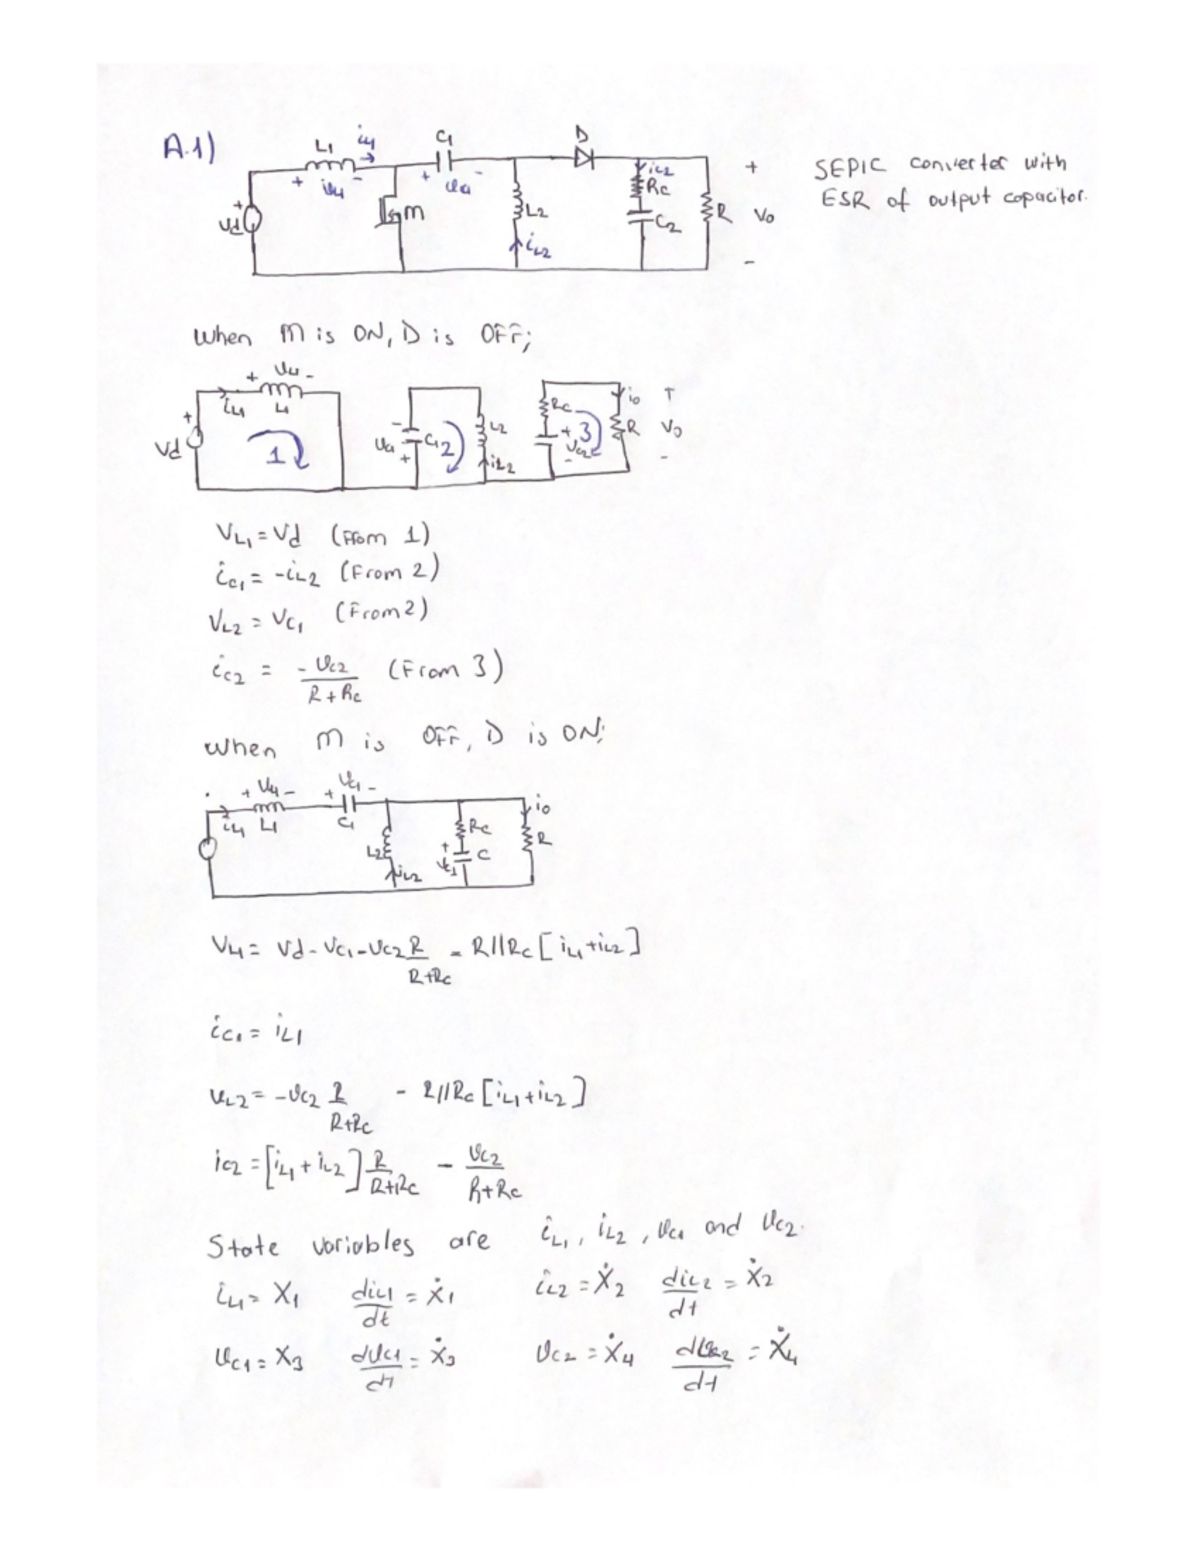 A.1)
L1 iL1 C1 D
+ vL1 - + vC1 - iC2 +
Vd + M L2 Rc R Vo
iL2 C2 -
SEPIC converter with
ESR of output capacitor.
When M is ON, D is OFF;
+ vL1 -
iL1 L1 Rc io +
Vd + 1 vC1 - C1 2 L2 + 3 R Vo
+ iL2 vC2 - -
VL1 = Vd (From 1)
iC1 = -iL2 (From 2)
VL2 = VC1 (From 2)
iC2 = -vC2 / (R+Rc) (From 3)
When M is OFF, D is ON;
+ vL1 - + vC1 -
iL1 L1 C1 io
L2 Rc R
iL2 + C
VL1 = Vd - VC1 - VC2 R/(R+Rc) - R//Rc [iL1+iL2]
iC1 = iL1
vL2 = -vC2 R/(R+Rc) - R//Rc [iL1+iL2]
iC2 = [iL1 + iL2] R/(R+Rc) - vC2/(R+Rc)
State variables are iL1, iL2, vC1 and vC2.
iL1 = X1 diL1/dt = Ẋ1 iL2 = Ẋ2 diL2/dt = Ẋ2
vC1 = X3 dvC1/dt = Ẋ3 vC2 = Ẋ4 dvC2/dt = Ẋ4